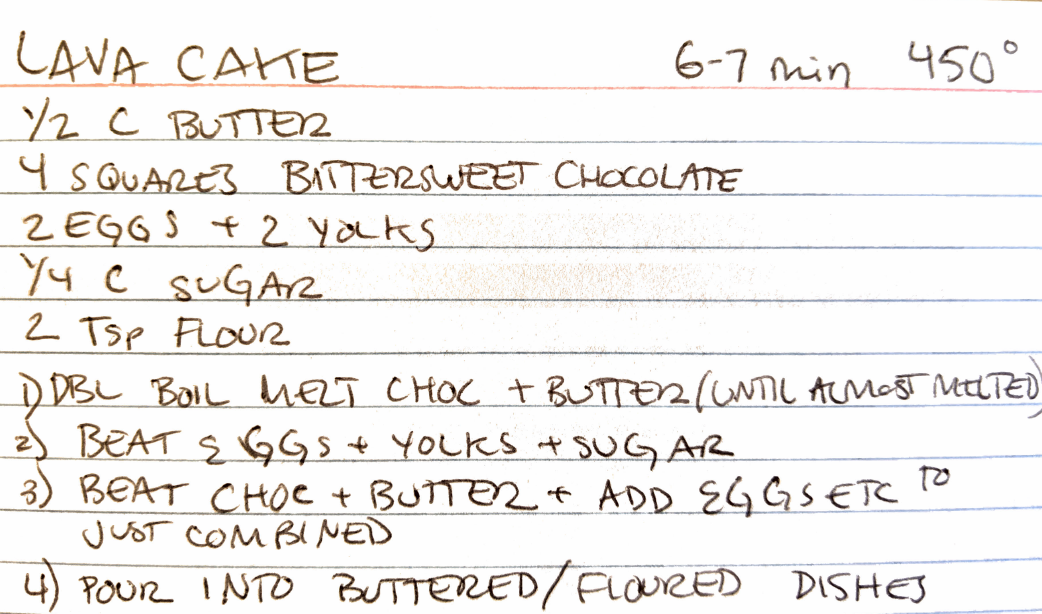 LAVA CAKE 6-7 min 450°
1/2 C BUTTER
4 SQUARES BITTERSWEET CHOCOLATE
2 EGGS + 2 YOLKS
1/4 C SUGAR
2 Tsp FLOUR
1) DBL BOIL MELT CHOC + BUTTER (UNTIL ALMOST MELTED)
2) BEAT EGGS + YOLKS + SUGAR
3) BEAT CHOC + BUTTER + ADD EGGS ETC TO
JUST COMBINED
4) POUR INTO BUTTERED/FLOURED DISHES